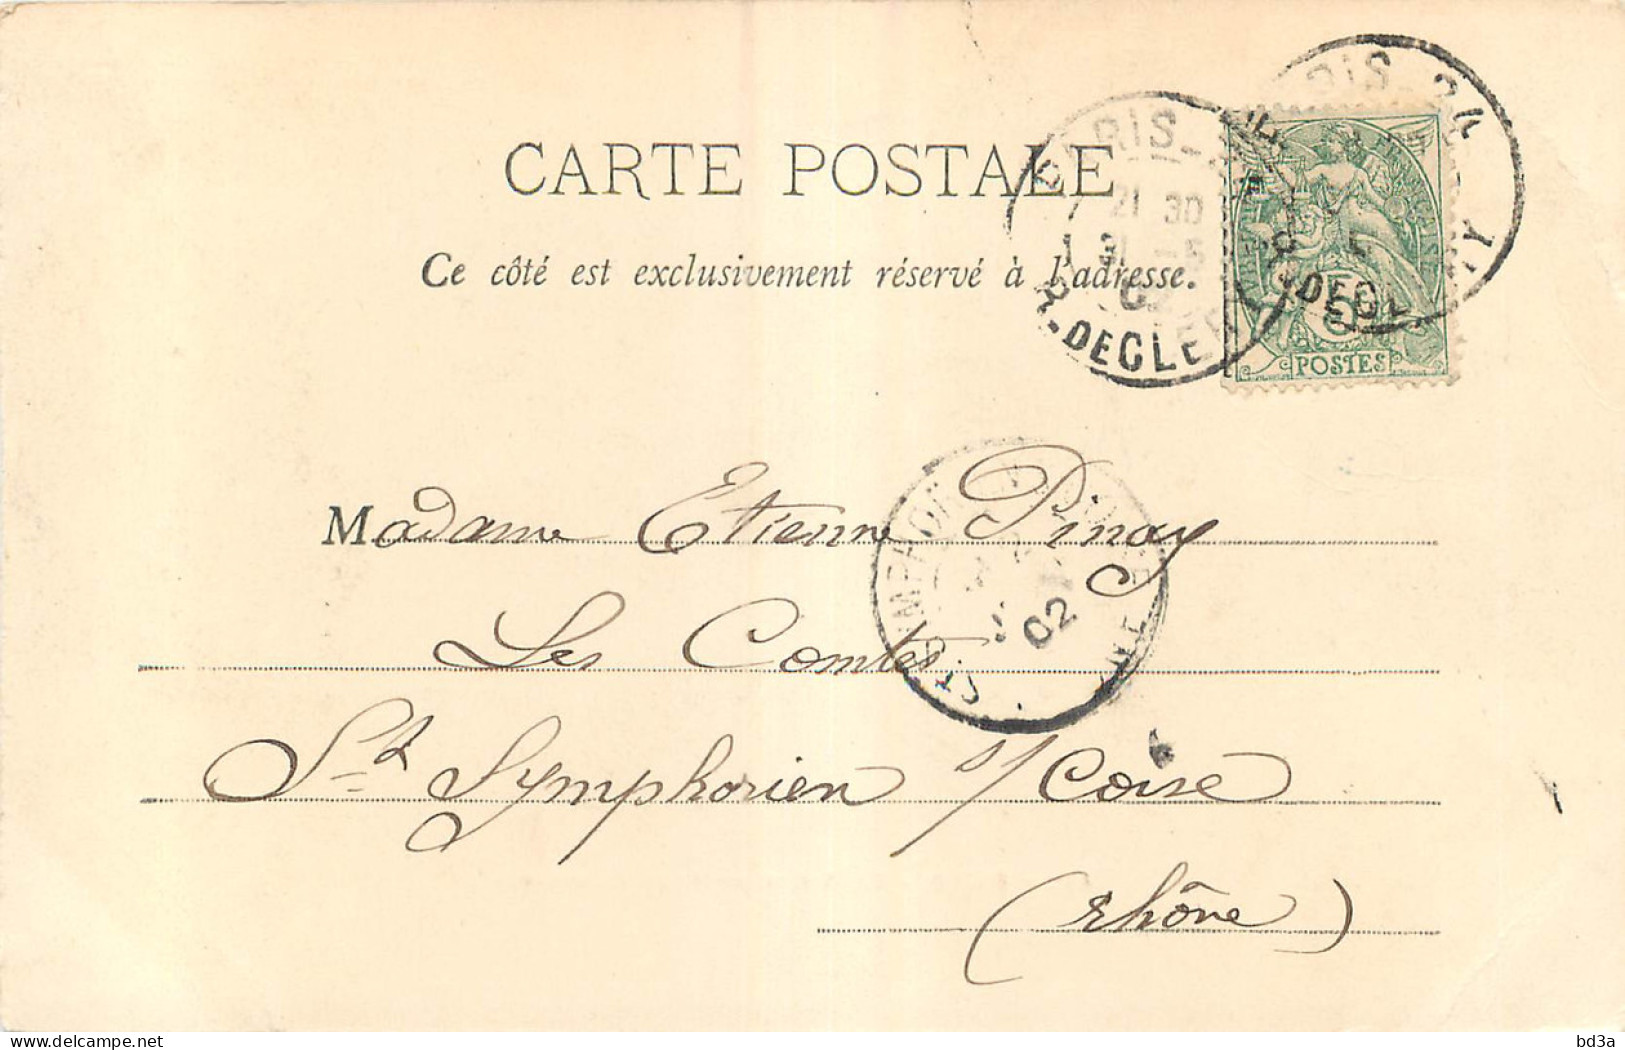 CARTE POSTALE
Ce côté est exclusivement réservé à l'adresse.
PARIS
21 30
R. DECLE
PARIS 24
R. DECL Y
POSTES
5
Madame Etienne Pinay
Les Comtes
St Symphorien s/ Coise
(Rhône)
02
bd3a